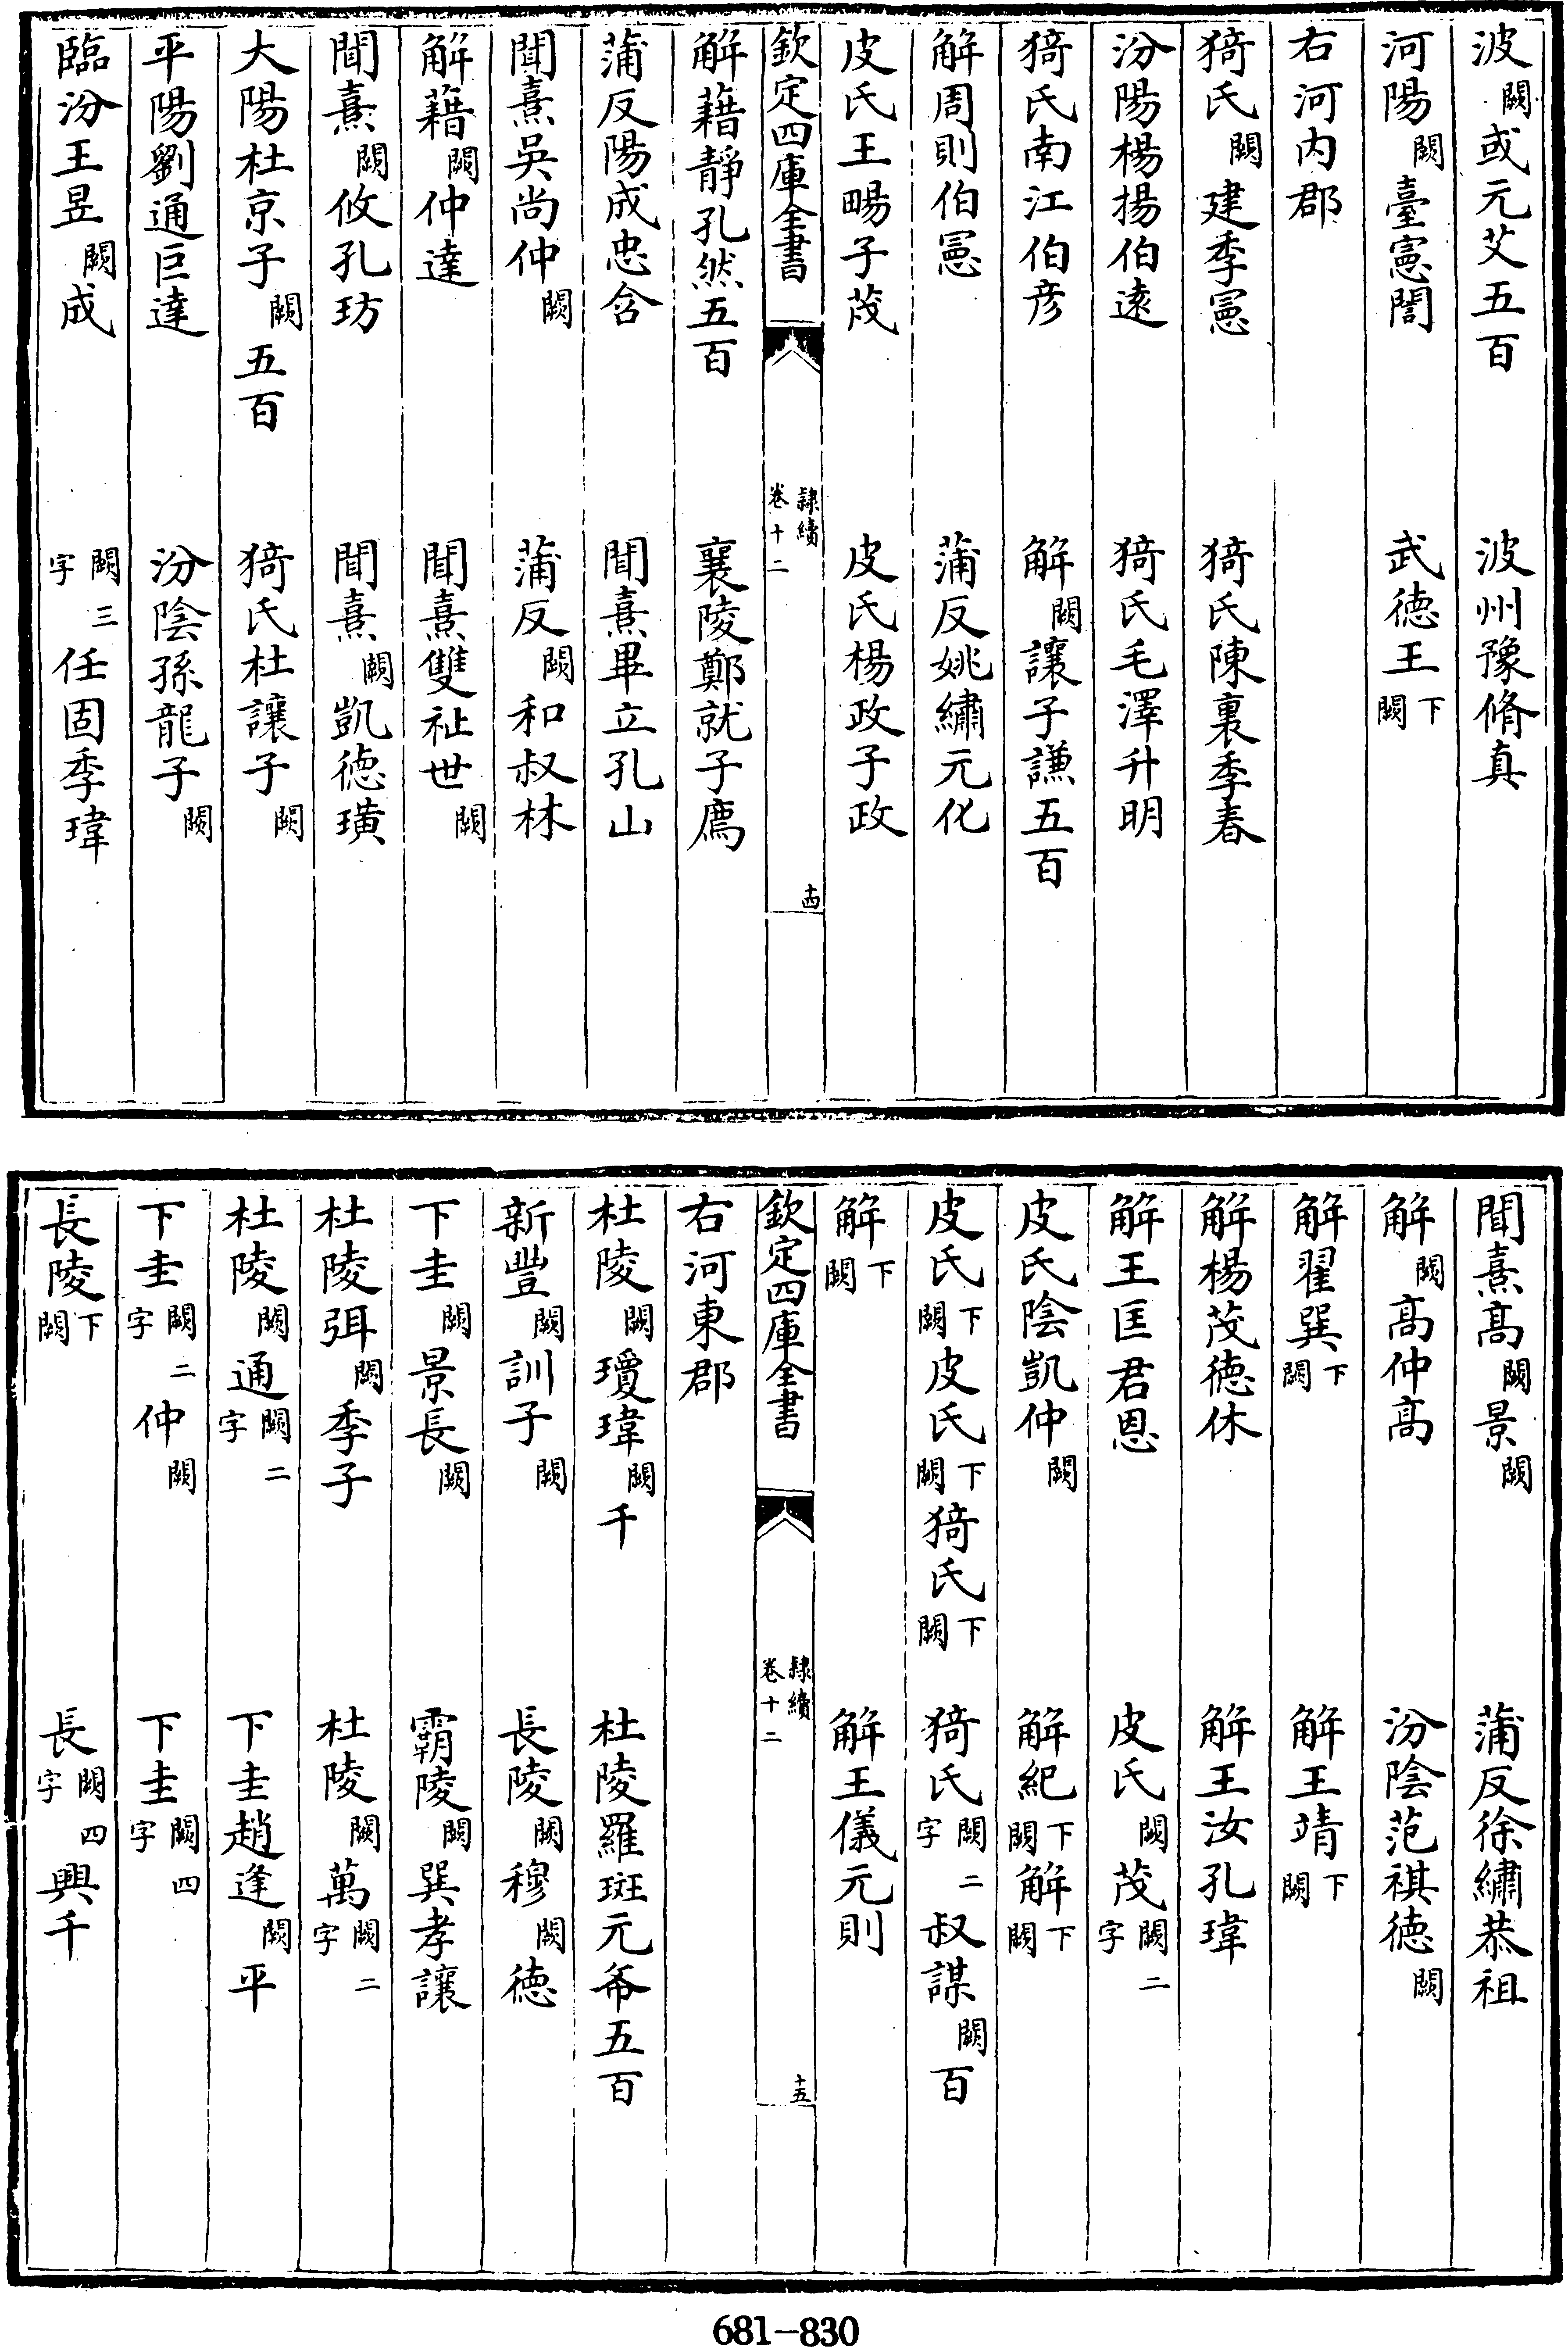 波闕或元艾五百　波州豫脩真
河陽闕臺憲誾　武德王下闕
右河内郡
猗氏闕建季憲　猗氏陳裏季春
汾陽楊揚伯遠　猗氏毛澤升明
猗氏南江伯彦　解闕讓子謙五百
解周則伯憲　蒲反姚繡元化
皮氏王暘子茂　皮氏楊政子政
欽定四庫全書　隸續卷十二　十四
解藉靜孔然五百　襄陵鄭就子廌
蒲反陽成忠含　聞熹畢立孔山
聞熹吳尚仲闕　蒲反闕和叔林
解藉闕仲達　聞熹雙祉世闕
聞熹闕攸孔玏　聞熹闕凱德璜
大陽杜京子闕五百　猗氏杜讓子闕
平陽劉通巨達　汾陰孫龍子闕
臨汾王昱闕成　闕三字任固季瑋
聞熹高闕景闕　蒲反徐繡恭祖
解闕高仲高　汾陰范祺德闕
解翟巽下闕　解王靖下闕
解楊茂德休　解王汝孔瑋
解王匡君恩　皮氏闕茂闕二字
皮氏陰凱仲闕　解紀下闕解下闕
皮氏下闕皮氏下闕猗氏下闕　猗氏闕二字叔謀闕百
解下闕　解王儀元則
欽定四庫全書　隸續卷十二　十五
右河東郡
杜陵闕瓊瑋闕千　杜陵羅斑元爺五百
新豐闕訓子闕　長陵闕穆闕德
下圭闕景長闕　霸陵闕巽孝讓
杜陵弭闕季子　杜陵闕萬闕二字
杜陵闕通闕二字　下圭趙逢闕平
下圭闕二字仲闕　下圭闕四字
長陵下闕　長闕四字興千
681-830